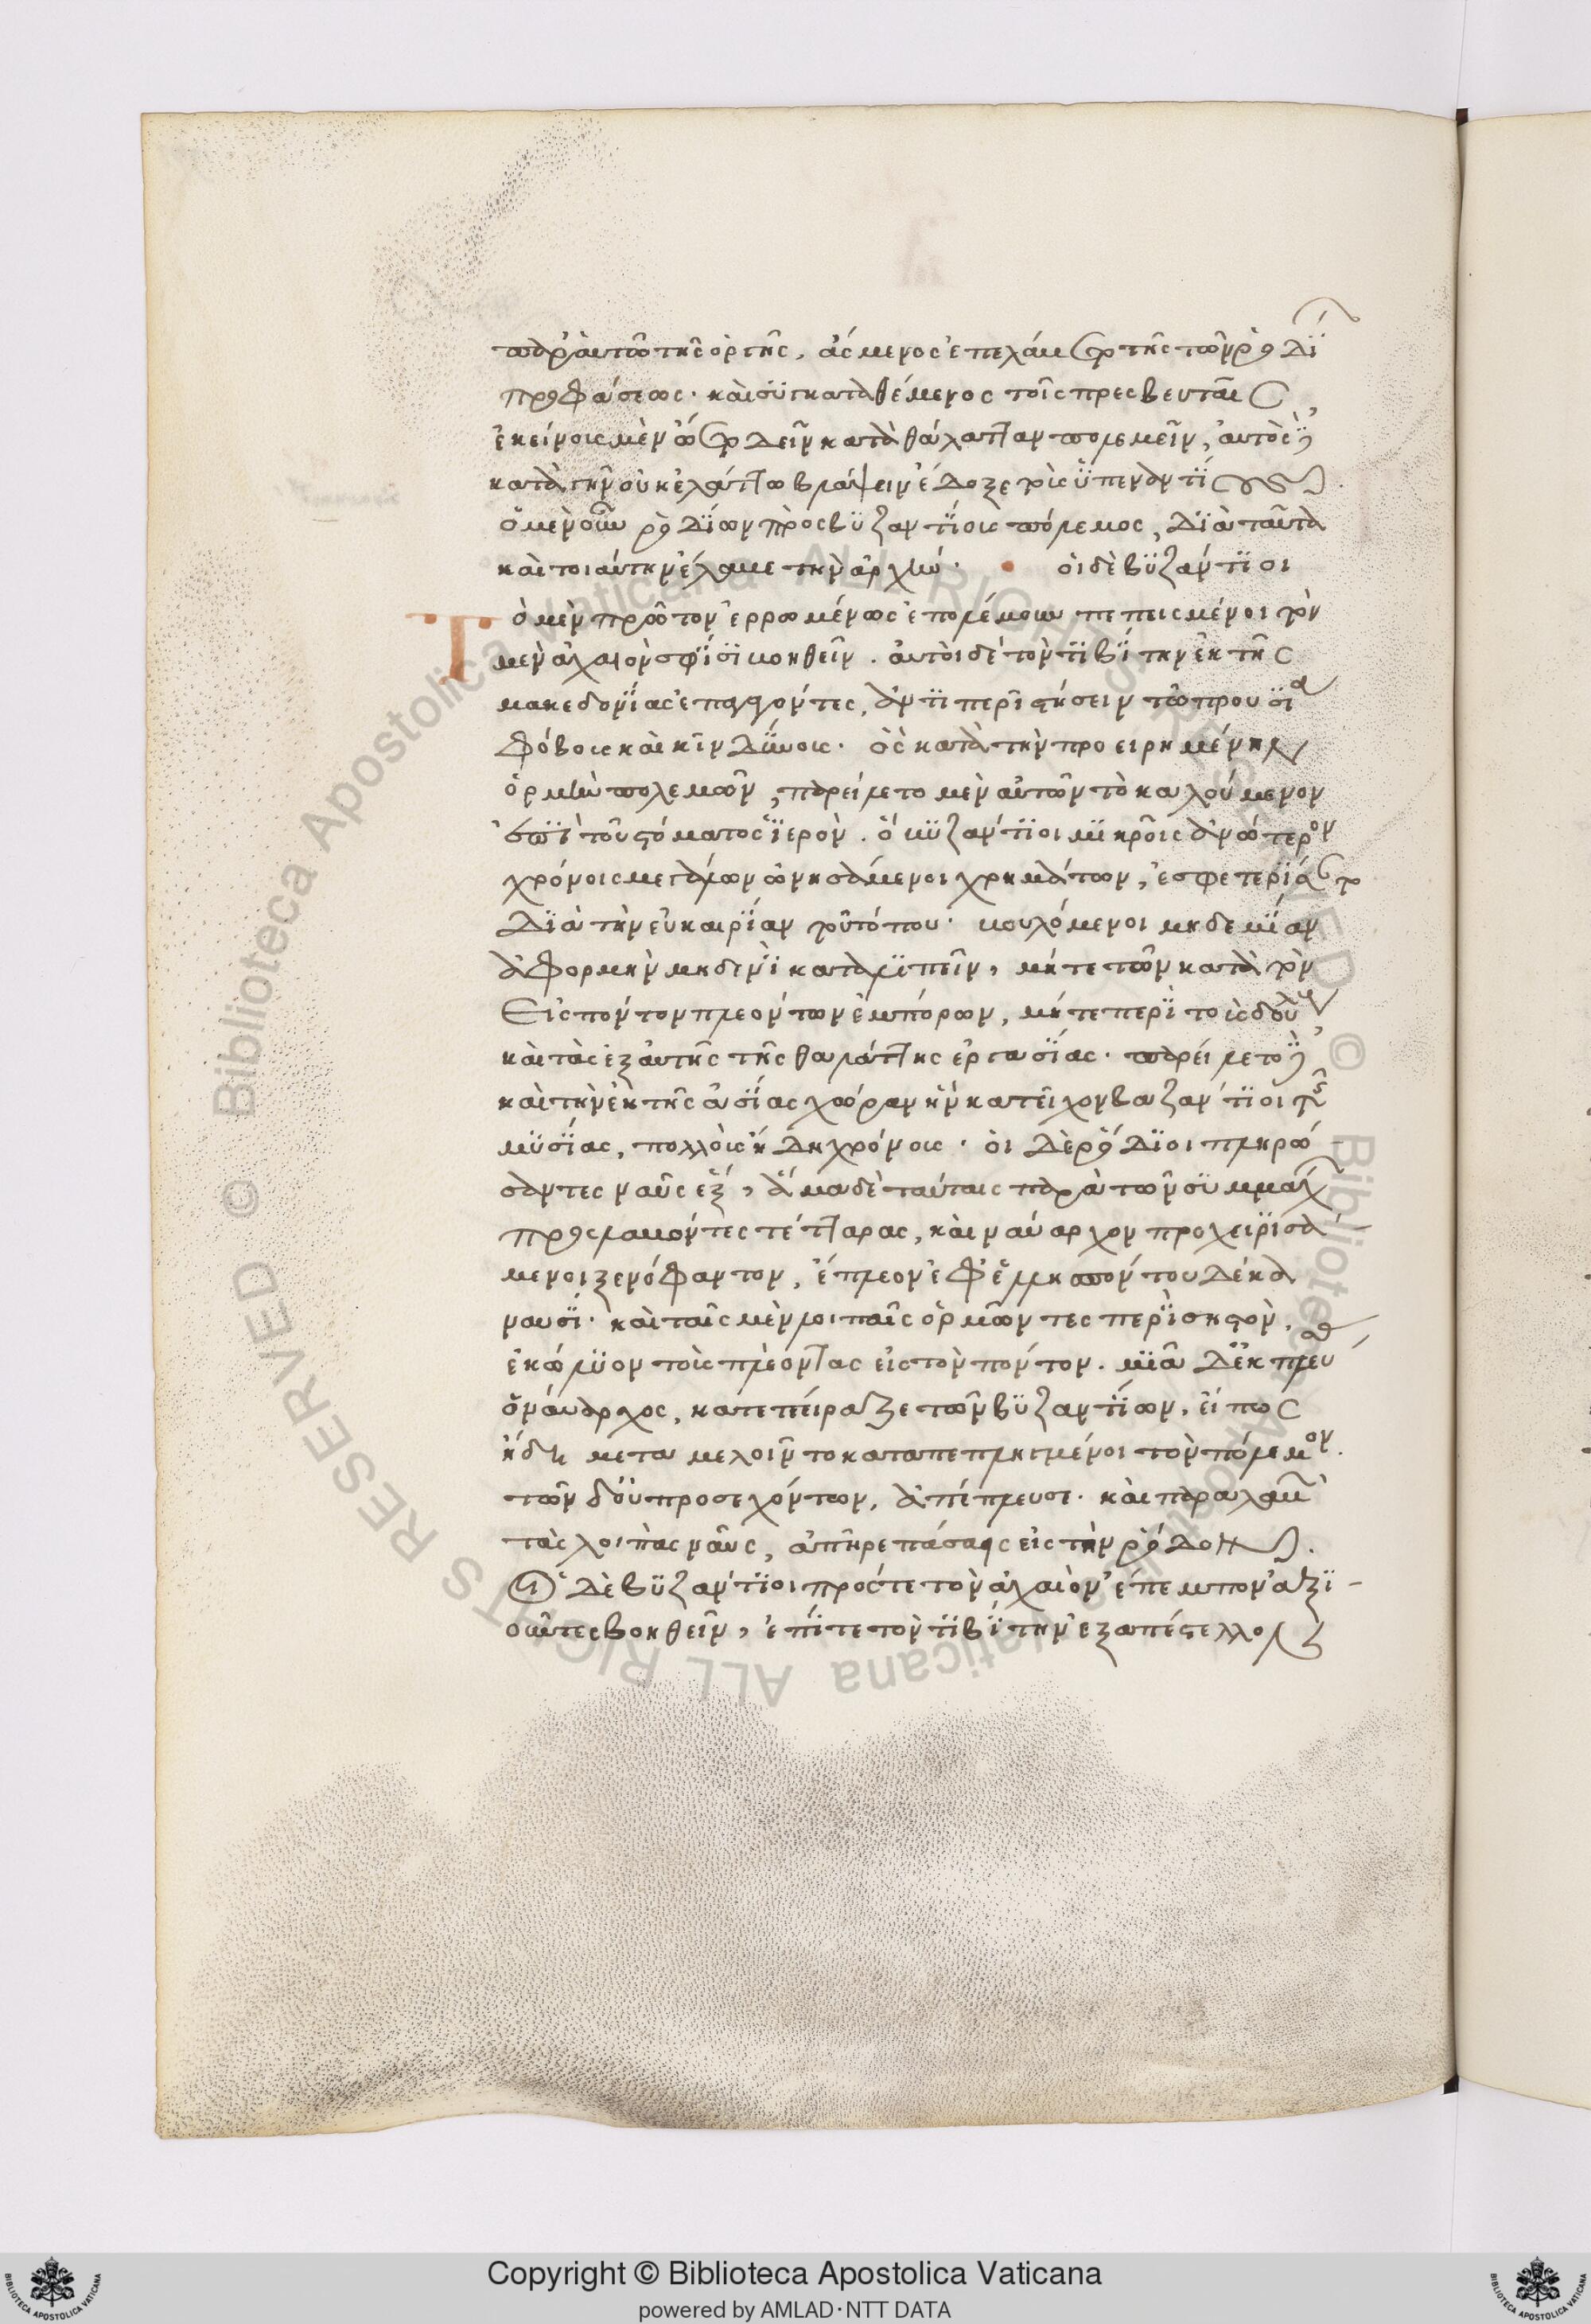 παρ' αὐτῶ τῆς ὀργῆς, ἄσμενος ἐπελάβετο τῆς τῶν ῥοδί
προφάσεως· καὶ συγκαταθέμενος τοῖς πρεσβευταῖς
ἐκείνοις μὲν ὤετο δεῖν κατὰ θάλατταν πολεμεῖν, αὐτὸς δ'
κατὰ γῆν οὐκ ἐλάττω βλάψειν ἔδοξε τοὺς ὑπεναντίους.
ὁ μὲν οὖν ῥοδίων πρὸς βυζαντίοις πόλεμος, διὰ ταῦτα
καὶ τοιαύτην ἔλαβε τὴν ἀρχήν· οἱ δὲ βυζάντιοι
Τὸ μὲν πρῶτον ἐρρωμένως ἐπολέμουν πεπεισμένοι τὸν
μὲν ἀχαιὸν σφίσι βοηθεῖν. αὐτοὶ δὲ τὸν τιβίτην ἐκ τῆς
μακεδονίας ἐπαγαγόντες, ἀντιπεριστήσειν τῶ προυσία
φόβοις καὶ κινδύνοις· ὃς κατὰ τὴν προειρημένην
ὁρμὴν πολεμῶν, παρείλετο μὲν αὐτῶν τὸ καλούμενον
ἐπὶ τοῦ στόματος ἱερὸν. ὃ βυζάντιοι μικροῖς ἀνώτερον
χρόνοις μεγάλων ὠνησάμενοι χρημάτων, ἐσφετερίσαντο
διὰ τὴν εὐκαιρίαν τοῦ τόπου· βουλόμενοι μηδεμίαν
ἀφορμὴν μηδενὶ καταλιπεῖν, μήτε τῶν κατὰ τὸν
Εἰς πόντον πλεόντων ἐμπόρων, μήτε περὶ τοὺς δούλους
καὶ τὰς ἐξ αὐτῆς τῆς θαλάττης ἐργασίας· παρείλετο δ'
καὶ τὴν ἐκ τῆς ἀσίας χώραν ἣν κατεῖχον βαζάντιοι τῆς
μυσίας, πολλοῖς ἤδη χρόνοις· οἱ δὲ ῥόδιοι πληρώ
σαντες ναῦς ἓξ, ἅμα δὲ ταύταις παρὰ τῶν συμμάχ
προσλαβόντες τέτταρας, καὶ ναύαρχον προχειρισά
μενοι ξενόφαντον, ἔπλεον ἐφ' ἑλλησπόντου δέκα
ναυσί· καὶ ταῖς μὲν λοιπαῖς ὁρμῶντες περὶ σηστὸν,
ἐκώλυον τοὺς πλέοντας εἰς τὸν πόντον. μιᾶ δ' ἐκπλεύσας
ὁ ναύαρχος, κατεπείραζε τῶν βυζαντίων, εἴ πως
ἤδη μεταμελοῖντο καταπεπληγμένοι τὸν πόλεμον.
τῶν δ' οὐ προσεχόντων, ἀπέπλευσε· καὶ παραλαβὼν
τὰς λοιπὰς ναῦς, ἀπῆρε πάσαις εἰς τὴν ῥόδον.
Οἱ δὲ βυζάντιοι πρός τε τὸν ἀχαιὸν ἔπεμπον ἀξι
οῦντες βοηθεῖν, ἐπί τε τὸν τιβίτην ἐξαπέστελλον
Copyright © Biblioteca Apostolica Vaticana
powered by AMLAD·NTT DATA
© Biblioteca Apostolica Vaticana ALL RIGHTS RESERVED © Biblioteca Apostolica Vaticana ALL RIGHTS RESERVED
BIBLIOTECA APOSTOLICA VATICANA
BIBLIOTECA APOSTOLICA VATICANA